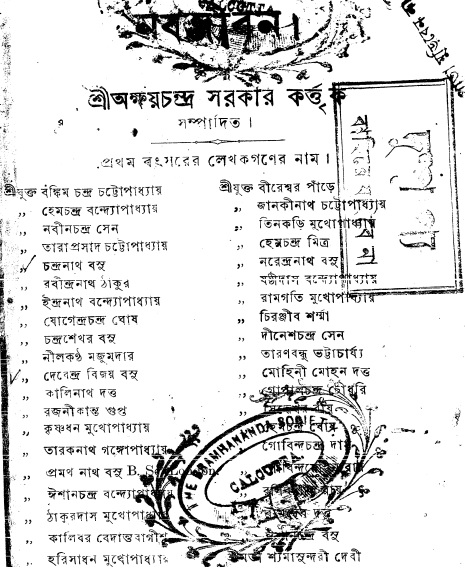 CALCUTTA
নবজীবন।
শ্রীঅক্ষয়চন্দ্র সরকার কর্ত্তৃক
সম্পাদিত।
প্রথম বৎসরের লেখকগণের নাম।
শ্রীযুক্ত বঙ্কিম চন্দ্র চট্টোপাধ্যায়
„ হেমচন্দ্র বন্দ্যোপাধ্যায়
„ নবীনচন্দ্র সেন
„ তারাপ্রসাদ চট্টোপাধ্যায়
„ চন্দ্রনাথ বসু
„ রবীন্দ্রনাথ ঠাকুর
„ ইন্দ্রনাথ বন্দ্যোপাধ্যায়
„ যোগেন্দ্রচন্দ্র ঘোষ
„ চন্দ্রশেখর বসু
„ নীলকণ্ঠ মজুমদার
„ দেবেন্দ্র বিজয় বসু
„ কালিনাথ দত্ত
„ রজনীকান্ত গুপ্ত
„ কৃষ্ণধন মুখোপাধ্যায়
„ তারকনাথ গঙ্গোপাধ্যায়
„ প্রমথ নাথ বসু B. Sc. London.
„ ঈশানচন্দ্র বন্দ্যোপাধ্যায়
„ ঠাকুরদাস মুখোপাধ্যায়
„ কালিবর বেদান্তবাগীশ
„ হরিসাধন মুখোপাধ্যায়
শ্রীযুক্ত বীরেশ্বর পাঁড়ে
„ জানকীনাথ চট্টোপাধ্যায়
„ তিনকড়ি মুখোপাধ্যায়
„ হেমচন্দ্র মিত্র
„ নরেন্দ্রনাথ বসু
„ ষষ্ঠীদাস বন্দ্যোপাধ্যায়
„ রামগতি মুখোপাধ্যায়
„ চিরঞ্জীব শর্ম্মা
„ দীনেশচন্দ্র সেন
„ তারণবন্ধু ভট্টাচার্য্য
„ মোহিনী মোহন দত্ত
„ গোপালচন্দ্র চৌধুরি
„ গোবিন্দচন্দ্র দাস
দত্ত
বসু
শ্রীমতী শ্যামাসুন্দরী দেবী
দুষ্প্রাপ্য
THE BRAMHANANDA
CALCUTTA.